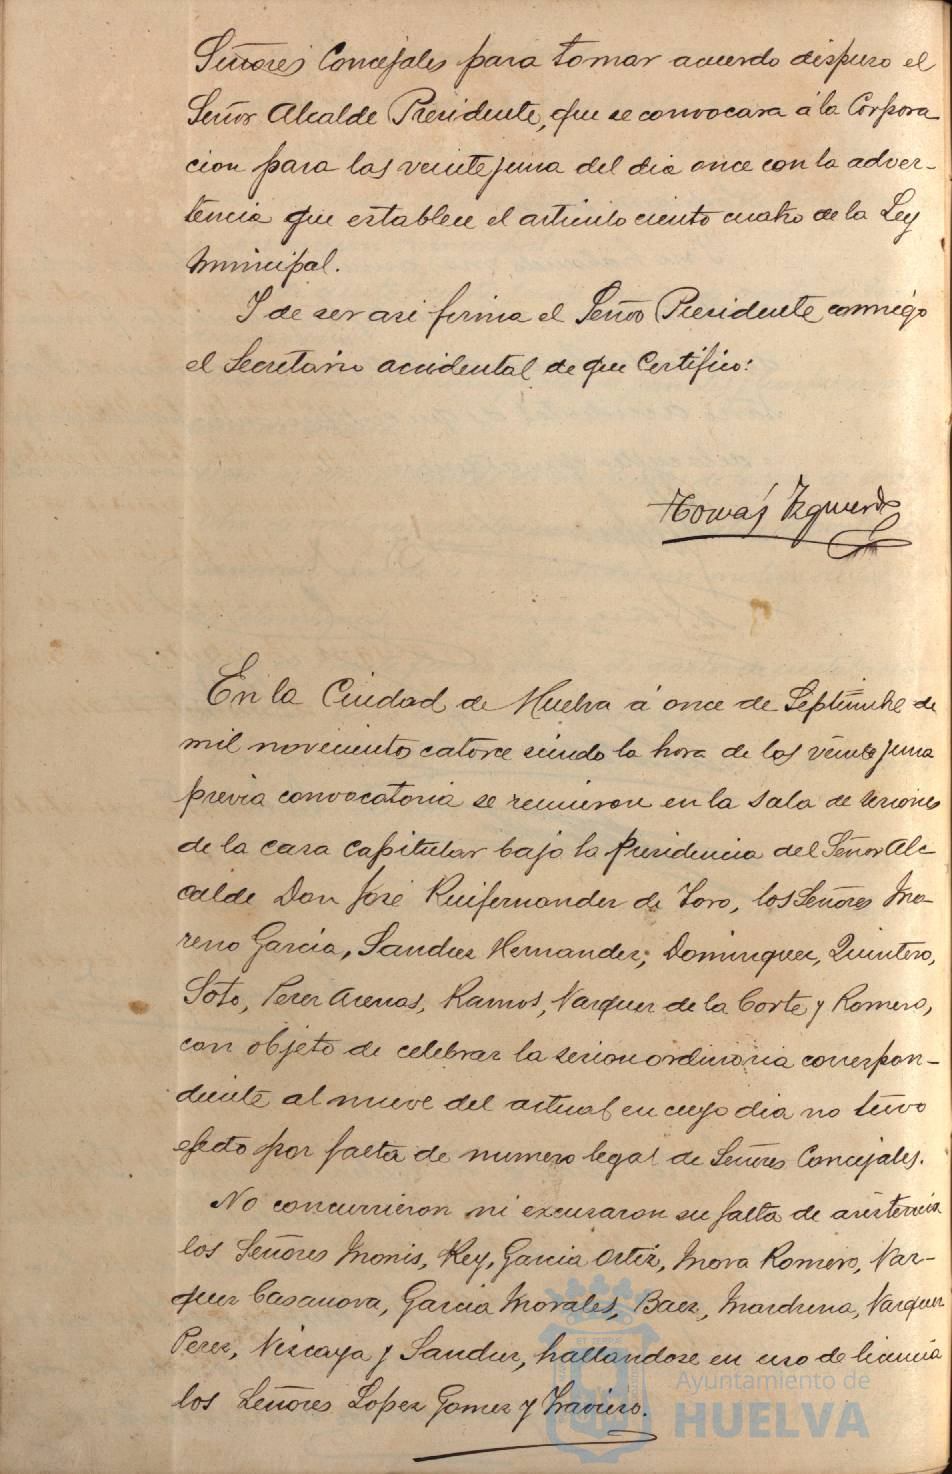 Señores Concejales para tomar acuerdo dispuso el
Señor Alcalde Presidente, que se convocara á la Corpora
cion para las veinte y una del dia once con la adver-
tencia que establece el articulo ciento cuatro de la Ley
Municipal.
Y de ser asi firma el Señor Presidente conmigo
el Secretario accidental de que Certifico:
Tomás Izquierdo
En la Ciudad de Huelva á once de Septiembre de
mil novecientos catorce siendo la hora de las veinte y una
previa convocatoria se reunieron en la Sala de sesiones
de la casa Capitular bajo la Presidencia del Señor Al-
calde Don José Ruifernandez de Toro, los Señores Mo-
reno Garcia, Sanchez Hernandez, Dominguez, Quintero,
Soto, Perez Arenas, Ramos, Vazquez de la Corte y Romero,
con objeto de celebrar la sesion ordinaria correspon-
diente al nueve del actual en cuyo dia no tuvo
efecto por falta de numero legal de Señores Concejales.
No concurrieron ni excusaron su falta de asistencia
los Señores Monis, Rey, Garcia Ortiz, Mora Romero, Vaz-
quez Casanova, Garcia Morales, Baez, Vazquez
Perez, Vizcaya y Sanchez, hallandose en uso de licencia
los Señores Lopez Gomez y
Ayuntamiento de
HUELVA